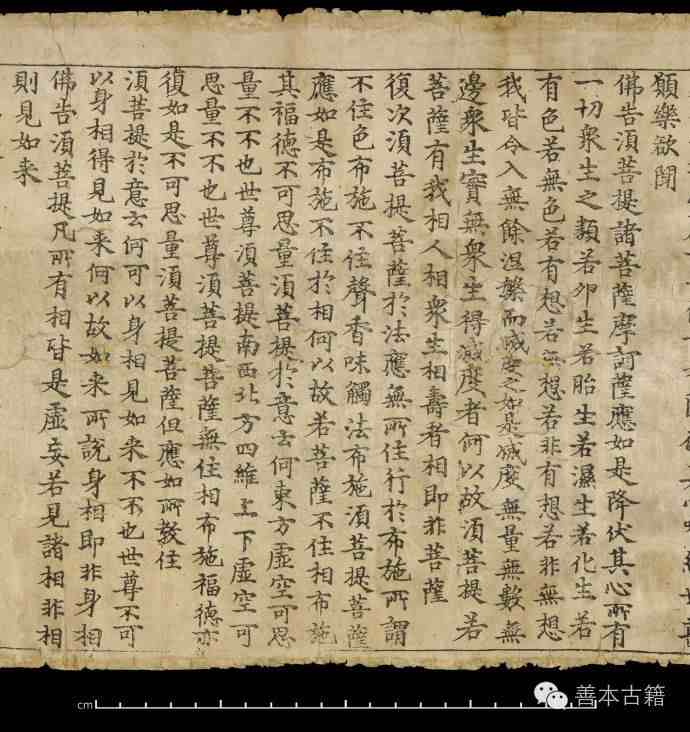 願樂欲聞
佛告須菩提諸菩薩摩訶薩應如是降伏其心所有
一切衆生之類若卵生若胎生若濕生若化生若
有色若無色若有想若無想若非有想若非無想
我皆令入無餘涅槃而滅度之如是滅度無量無數無
邊衆生實無衆生得滅度者何以故須菩提若
菩薩有我相人相衆生相壽者相即非菩薩
復次須菩提菩薩於法應無所住行於布施所謂
不住色布施不住聲香味觸法布施須菩提菩薩
應如是布施不住於相何以故若菩薩不住相布施
其福德不可思量須菩提於意云何東方虛空可思
量不不也世尊須菩提南西北方四維上下虛空可
思量不不也世尊須菩提菩薩無住相布施福德亦
復如是不可思量須菩提菩薩但應如所教住
須菩提於意云何可以身相見如来不不也世尊不可
以身相得見如来何以故如来所說身相即非身相
佛告須菩提凡所有相皆是虛妄若見諸相非相
則見如来
cm
善本古籍